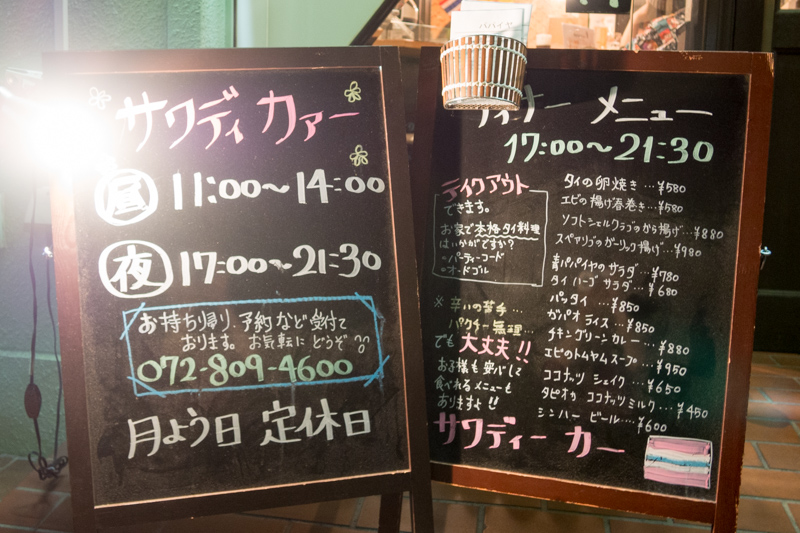 サワディ カァー
昼 11:00～14:00
夜 17:00～21:30
お持ち帰り、予約など受付て
おります。お気軽に どうぞ
072-809-4600
月よう日 定休日
ディナー メニュー
17:00～21:30
テイクアウト
できます。
お家で本格タイ料理
はいかがですか?
・パーティーコード
・オードゴル
※ 辛いの苦手…
パクチー無理…
でも 大丈夫!!
お子様も安心して
食べれるメニューも
ありますよ!!
タイの卵焼き …¥580
エビの揚げ春巻き …¥580
ソフトシェルクラブのから揚げ …¥880
スペアリブのガーリック揚げ …¥980
青パパイヤのサラダ …¥780
タイ ハーブ サラダ …¥680
パッタイ …¥850
ガパオ ライス …¥850
チキン グリーン カレー …¥880
エビのトムヤムスープ …¥950
ココナッツ シェイク …¥650
タピオカ ココナッツ ミルク …¥450
シンハー ビール …¥600
サワディー カー